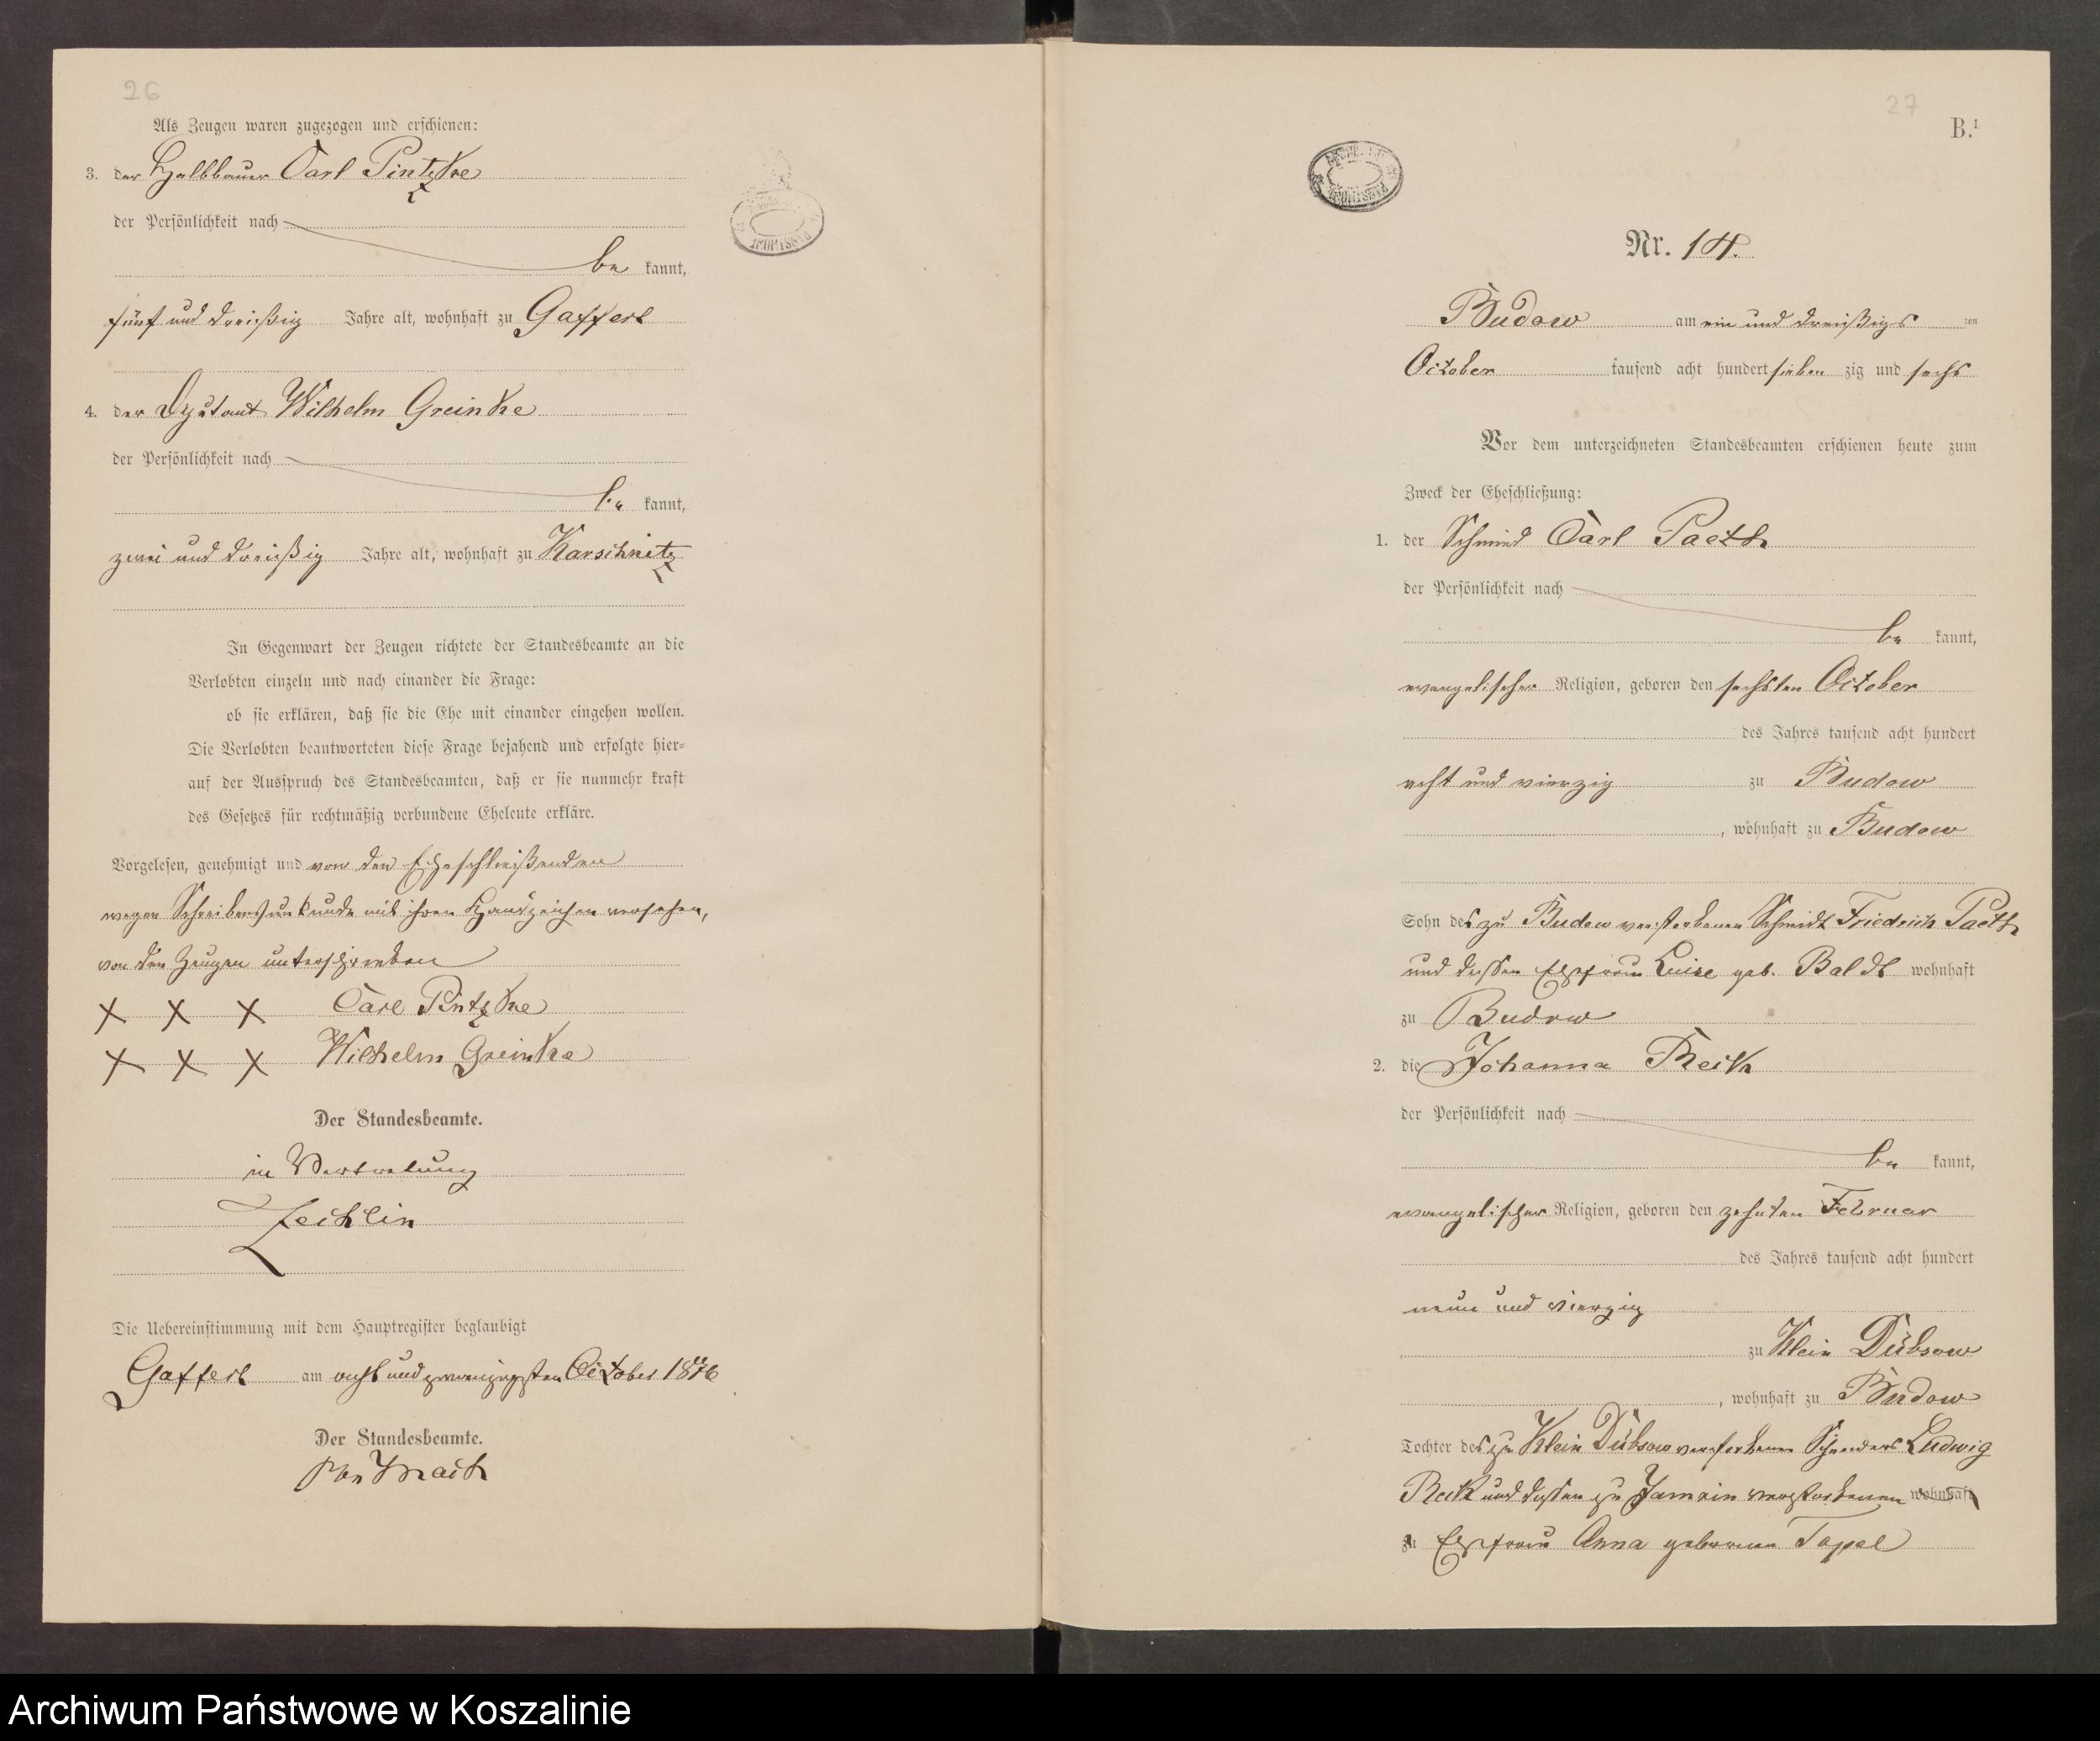 26
Als Zeugen waren zugezogen und erschienen:
3. der Halbbauer Carl Pintzke
der Persönlichkeit nach
be kannt,
fünf und dreißig Jahre alt, wohnhaft zu Gaffert
4. der Deputant Wilhelm Greinke
der Persönlichkeit nach
be kannt,
zwei und dreißig Jahre alt, wohnhaft zu Karschnitz
In Gegenwart der Zeugen richtete der Standesbeamte an die
Verlobten einzeln und nach einander die Frage:
ob sie erklären, daß sie die Ehe mit einander eingehen wollen.
Die Verlobten beantworteten diese Frage bejahend und erfolgte hier=
auf der Ausspruch des Standesbeamten, daß er sie nunmehr kraft
des Gesetzes für rechtmäßig verbundene Eheleute erkläre.
Vorgelesen, genehmigt und von den Eheschließenden
wegen Schreibensunkunde mit ihren Handzeichen versehen,
von den Zeugen unterschrieben
X X X Carl Pintzke
X X X Wilhelm Greinke
Der Standesbeamte.
in Vertretung
Zechlin
Die Uebereinstimmung mit dem Hauptregister beglaubigt
Gaffert am acht und zwanzigsten October 1876
Der Standesbeamte.
27
B.1
Nr. 14.
Budow am ein und dreißigs ten
October tausend acht hundert sieben zig und sechs
Vor dem unterzeichneten Standesbeamten erschienen heute zum
Zweck der Eheschließung:
1. der Schmied Carl Paeth
der Persönlichkeit nach
be kannt,
evangelischer Religion, geboren den sechsten October
des Jahres tausend acht hundert
acht und vierzig zu Budow
, wohnhaft zu Budow
Sohn des zu Budow verstorbenen Schmidt Friedrich Paeth
und dessen Ehefrau Luise geb. Baldt wohnhaft
zu Budow
2. die Johanna Reck
der Persönlichkeit nach
be kannt,
evangelischer Religion, geboren den zehnten Februar
des Jahres tausend acht hundert
neun und vierzig
zu Klein Dübsow
, wohnhaft zu Budow
Tochter des zu Klein Dübsow verstorbenen Ludwig
Reck und dessen zu Jamrin verstorbenen wohnhaft
zu Ehefrau Anna geborenen Papel
Archiwum Państwowe w Koszalinie